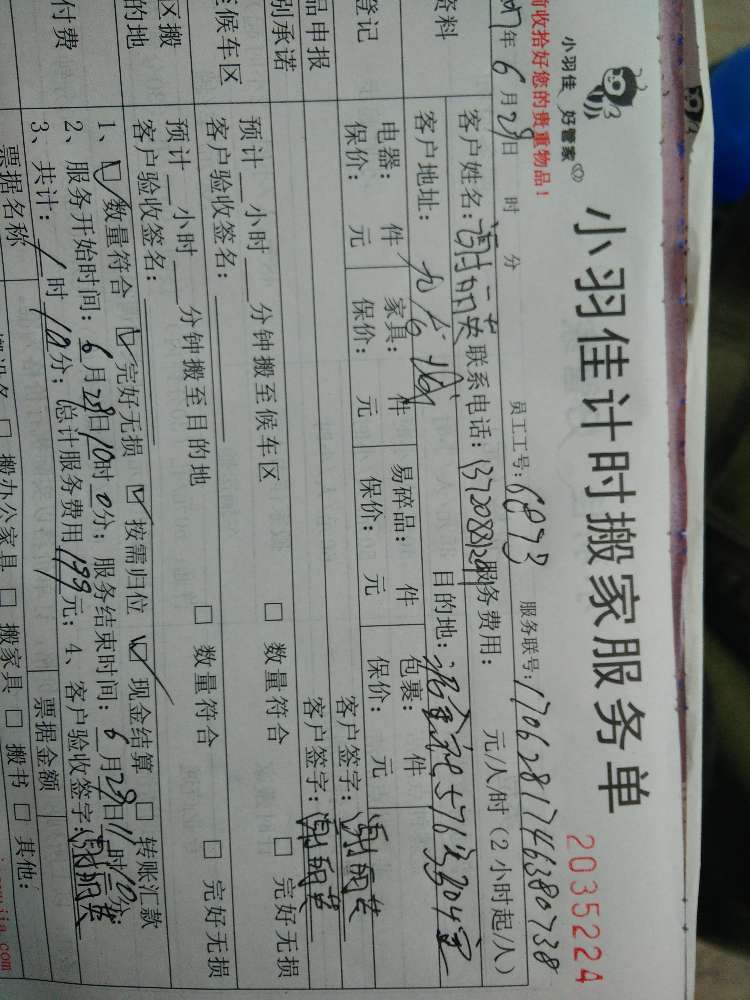 小羽佳 好管家
小羽佳计时搬家服务单
2035224
前收拾好您的贵重物品!
员工工号: 6873 服务联号: 1706281746380738
年 6 月 29 日 时 分
资料
客户姓名: 联系电话: 服务费用: 元/人/时 (2小时起/人)
客户地址: 目的地:
登记
电器: 件 家具: 件 易碎品: 件 包裹: 件
保价: 元 保价: 元 保价: 元 保价: 元
客户签字:
品申报
客户签字:
别承诺
候车区
预计 小时 分钟搬至候车区 □ 数量符合 □ 完好无损
客户验收签名:
区搬
的地
预计 小时 分钟搬至目的地 □ 数量符合 □ 完好无损
客户验收签名:
付费
1、☑ 数量符合 ☑ 完好无损 ☑ 按需归位 ☑ 现金结算 □ 转账汇款
2、服务开始时间: 6月29日10时0分; 服务结束时间: 6月29日11时10分;
3、共计: 1 时 10 分; 总计服务费用 199 元; 4、客户验收签字:
票据名称 票据金额
□ 搬办公家具 □ 搬家具 □ 搬书 □ 其他: